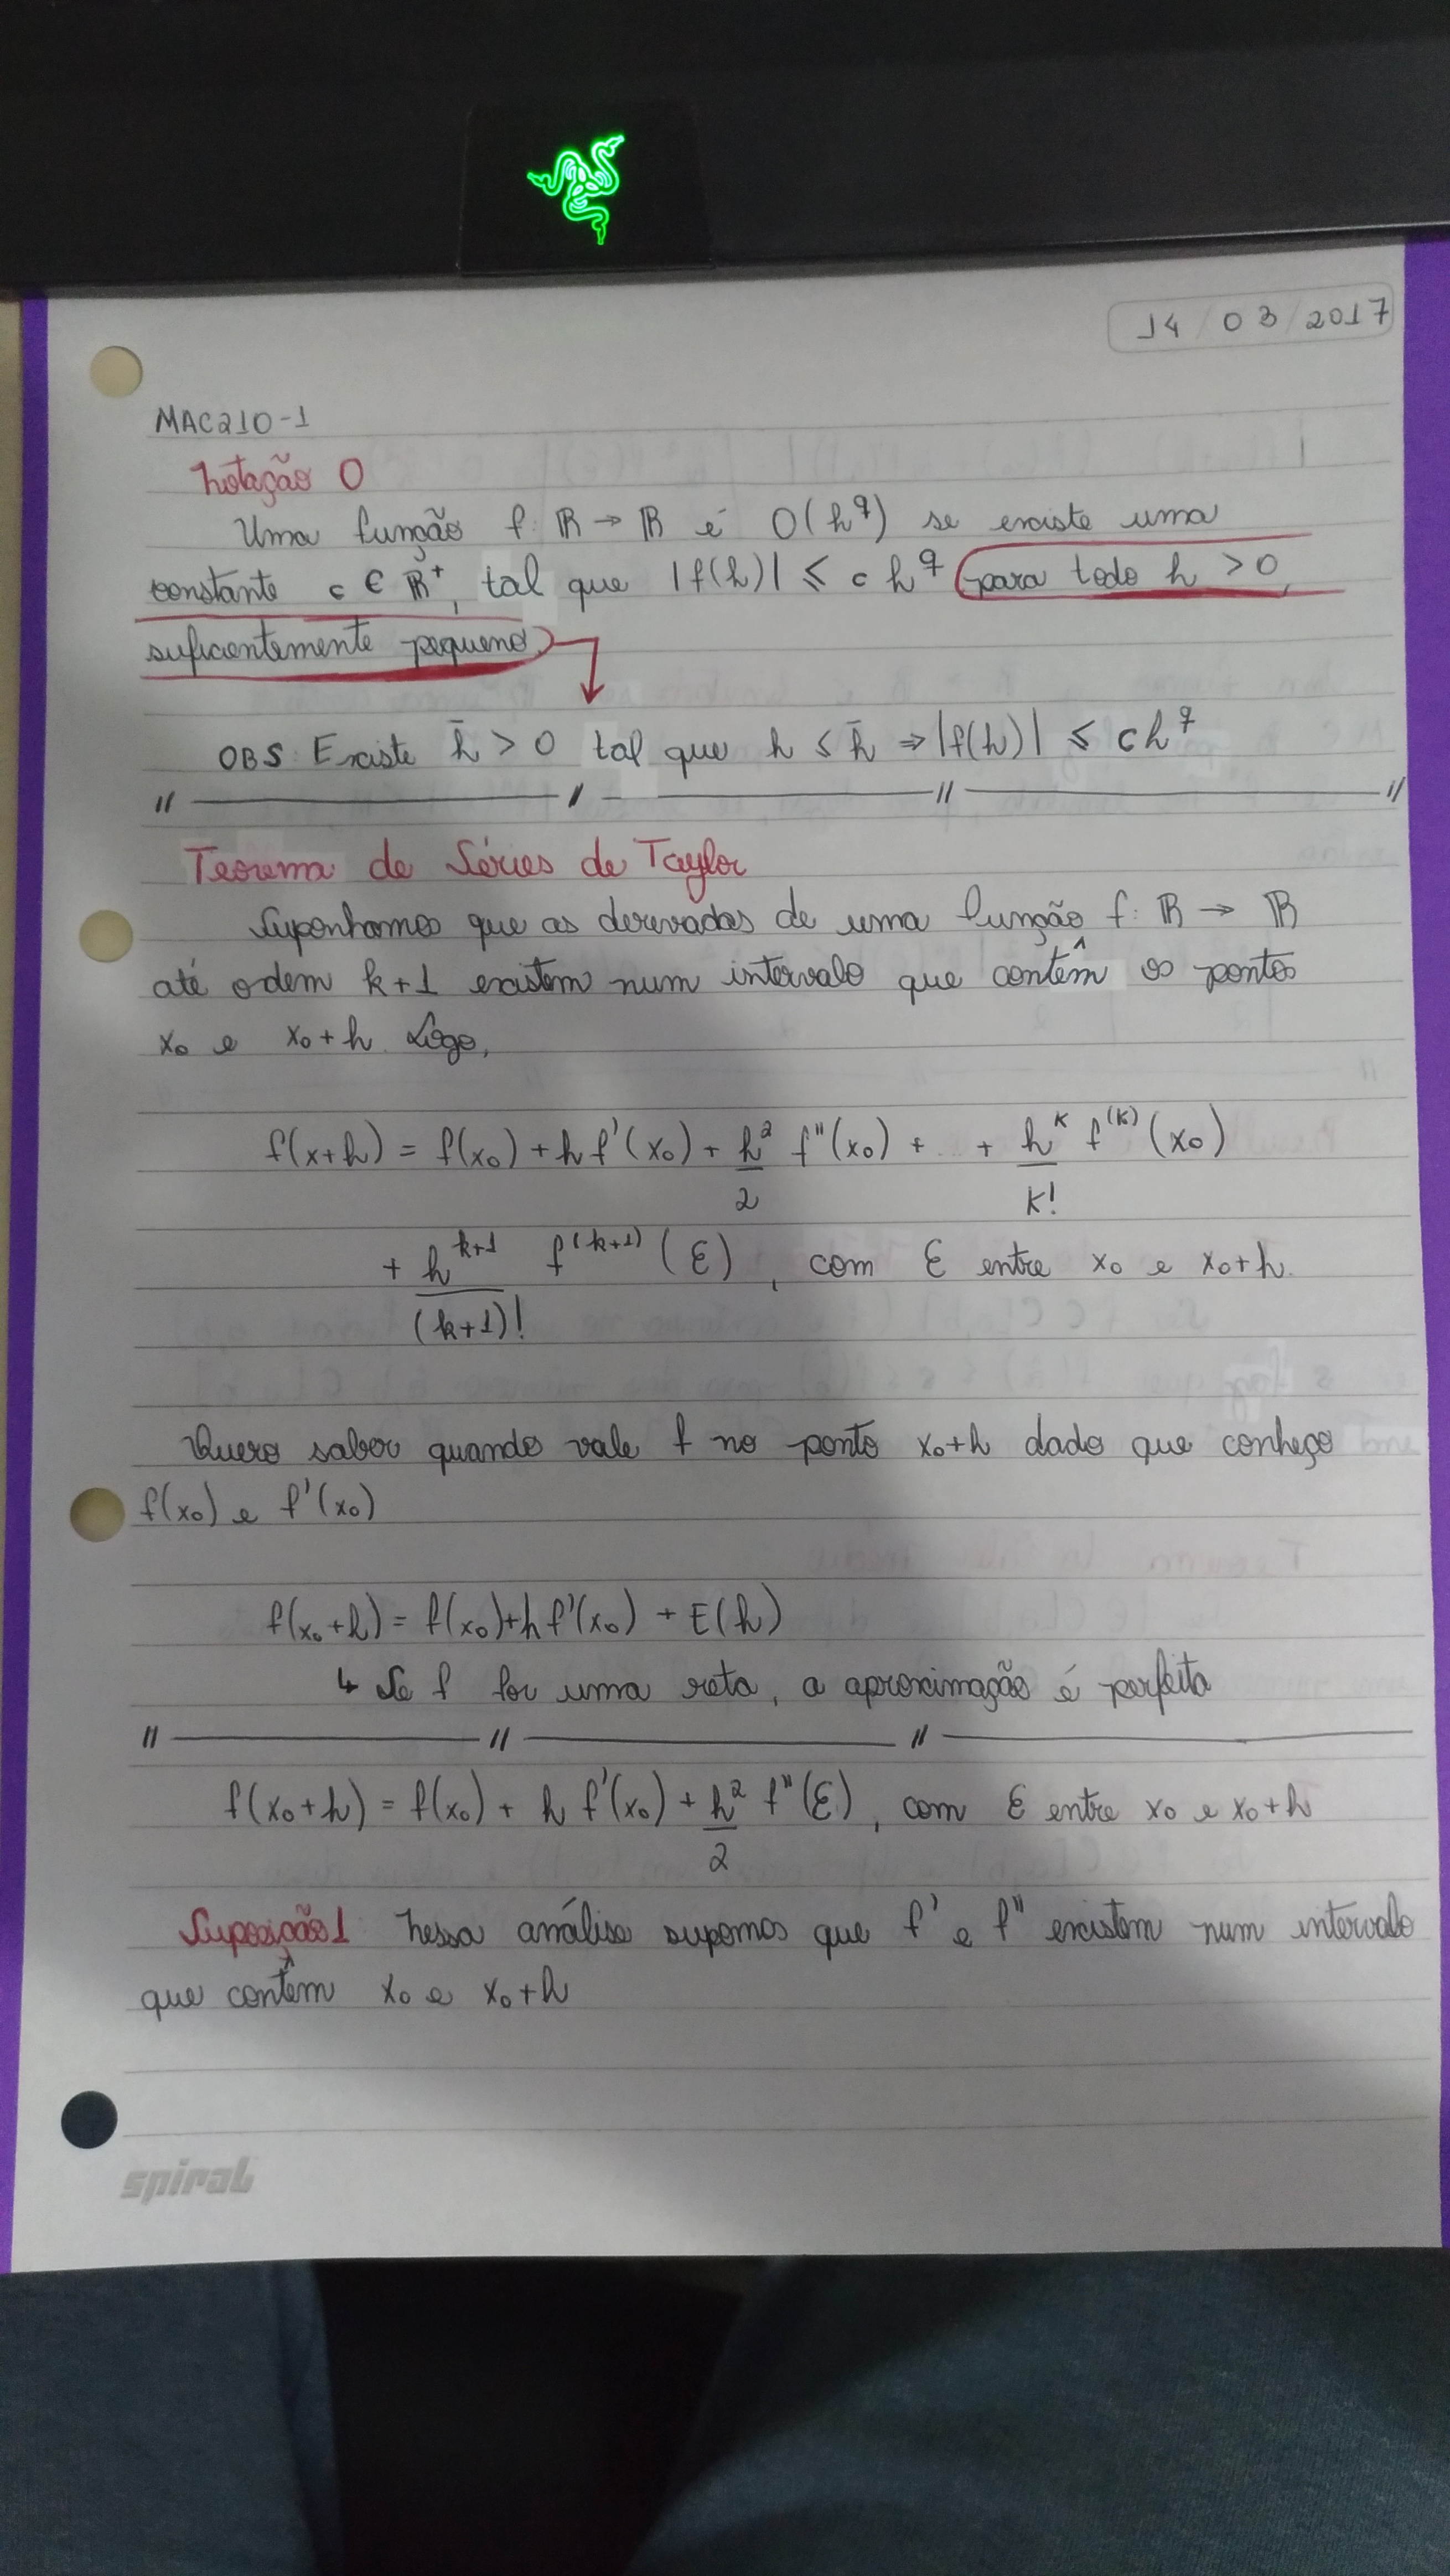 14/03/2017
MAC210-1
Notação O
Uma função f: ℝ → ℝ é O(h^q) se existe uma
constante c ∈ ℝ⁺, tal que |f(h)| ≤ c h^q para todo h > 0,
suficientemente pequeno
OBS Existe h̄ > 0 tal que h ≤ h̄ ⇒ |f(h)| ≤ ch^q
Teorema de Séries de Taylor
Suponhamos que as derivadas de uma função f: ℝ → ℝ
até ordem k+1 existem num intervalo que contêm os pontos
x₀ e x₀+h. Logo,
f(x+h) = f(x₀) + h f'(x₀) + h²/2 f''(x₀) + + h^k/k! f^(k)(x₀)
+ h^(k+1)/(k+1)! f^(k+1)(ε), com ε entre x₀ e x₀+h.
Quero saber quando vale f no ponto x₀+h dado que conheço
f(x₀) e f'(x₀)
f(x₀+h) = f(x₀)+h f'(x₀) + E(h)
↳ Se f for uma reta, a aproximação é perfeita
f(x₀+h) = f(x₀) + h f'(x₀) + h²/2 f''(ε), com ε entre x₀ e x₀+h
Suposição 1 Nessa análise supomos que f' e f'' existem num intervalo
que contêm x₀ e x₀+h
spiral